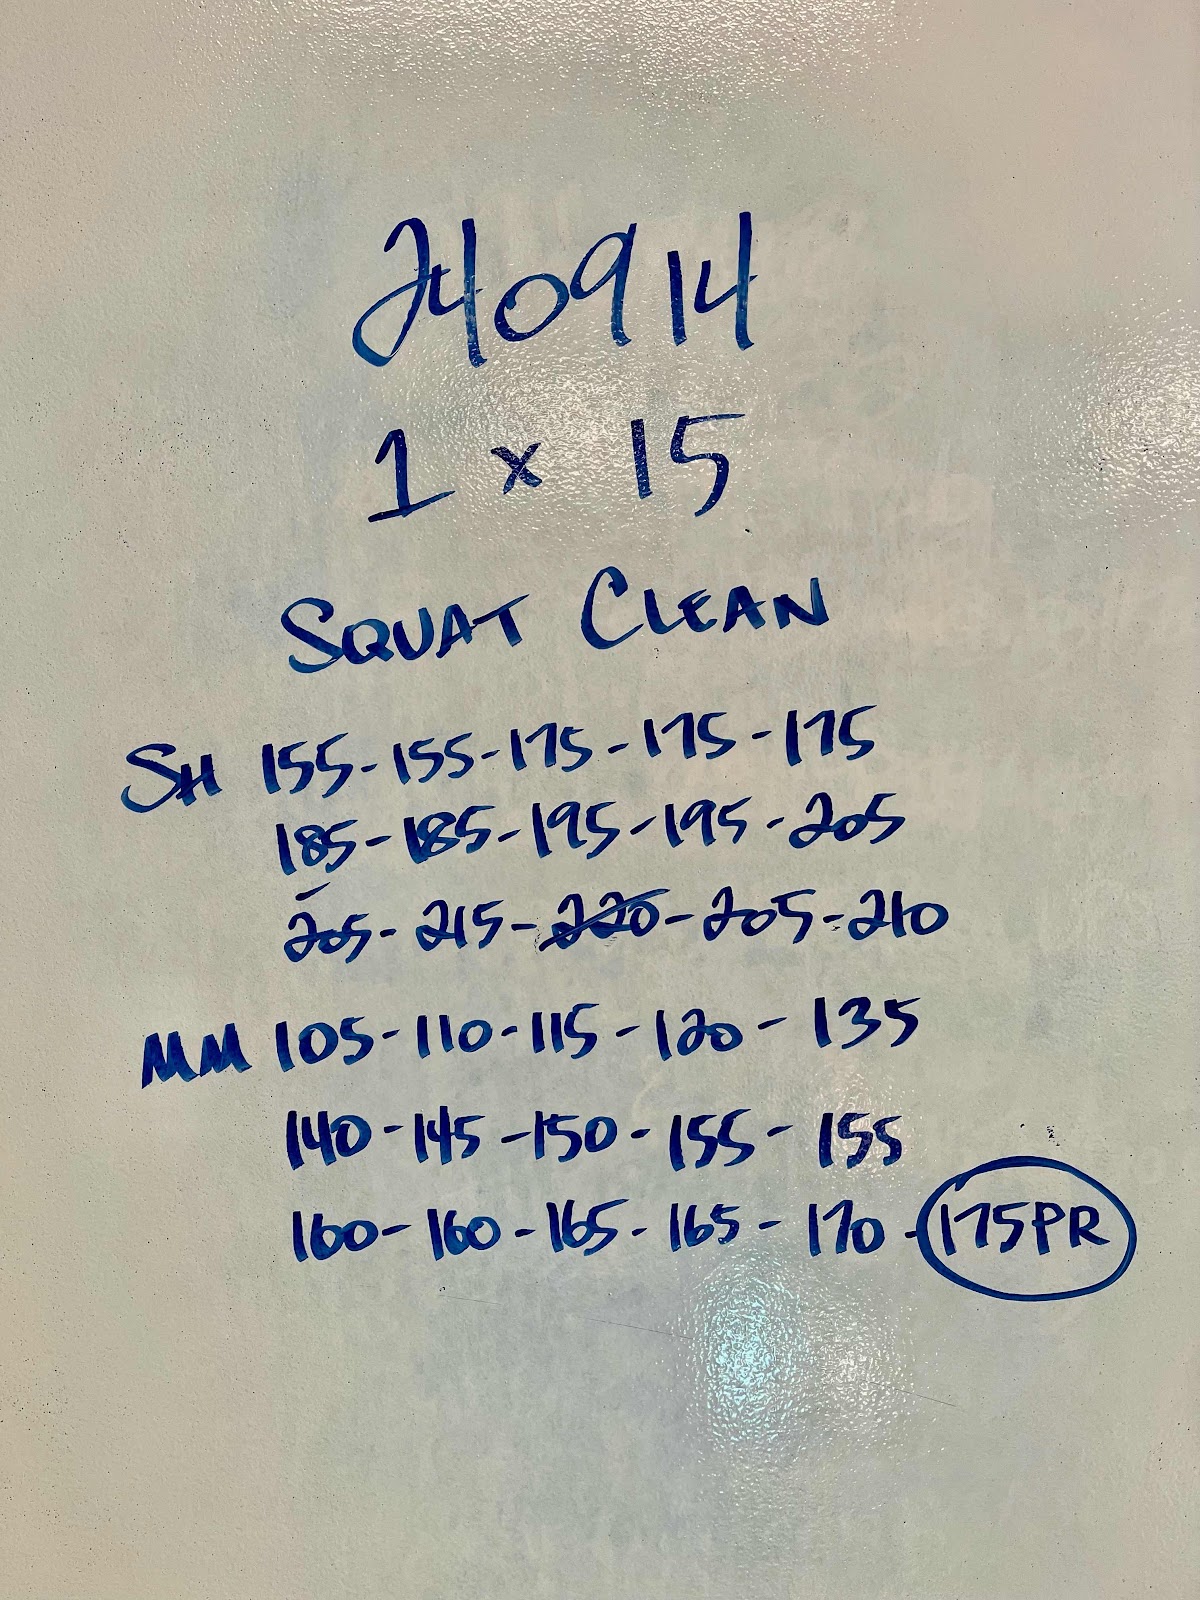 240914
1 x 15
SQUAT CLEAN
SH 155-155-175-175-175
185-185-195-195-205
205-215-220-205-210
MM 105-110-115-120-135
140-145-150-155-155
160-160-165-165-170-175PR